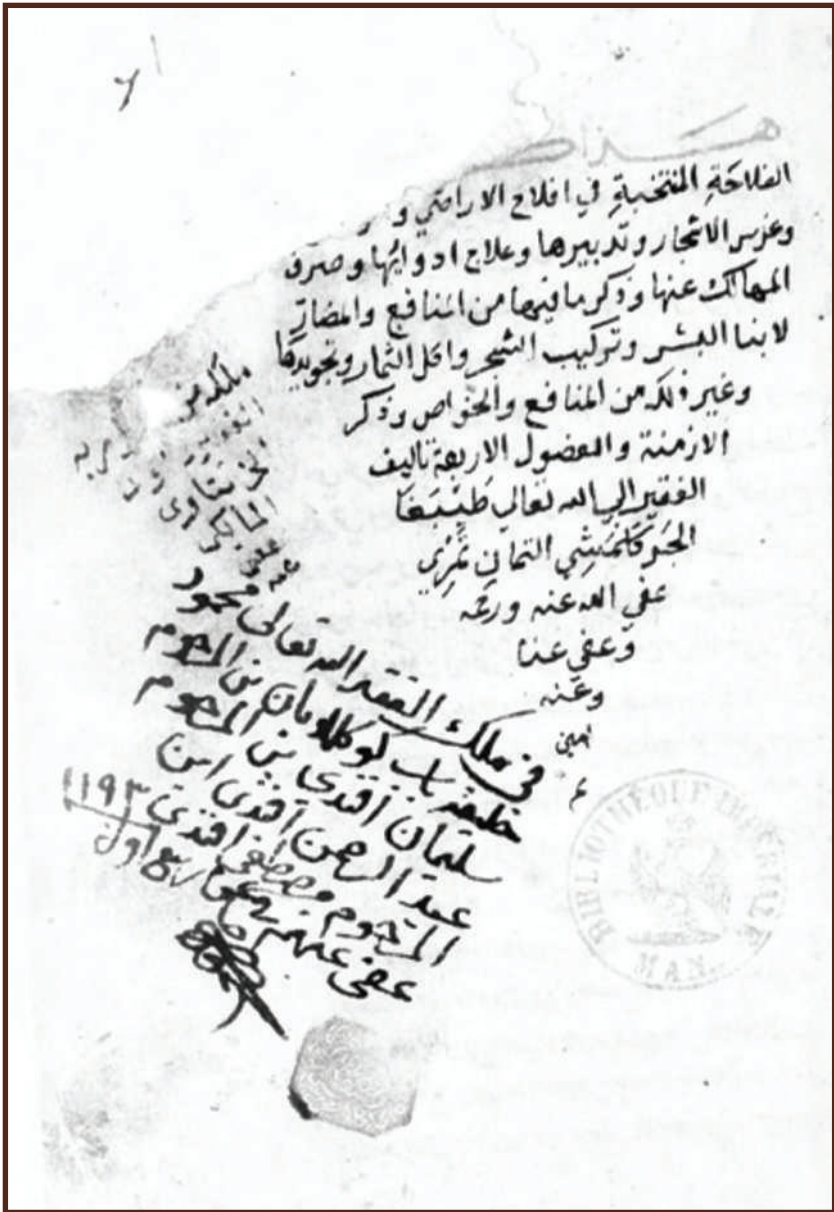 هذا
الفلاحة المنتخبة في افلاح الاراضي و
وغرس الاشجار وتدبيرها وعلاج ادوائها وصرف
المهالك عنها وذكر ما فيها من المنافع والمضار
لابنا البشر وتركيب الشجر واكل الثمار وتجويدها
وغير ذلك من المنافع والخواص وذكر
الازمنة والفصول الاربعة تاليف
الفقير الي الله تعالي طيبغا
الجركلمشي التمان تمري
عفي الله عنه ورحمه
وعفي عنا
وعنه
امين
م
في ملك الفقير الله تعالى محمود
خليفه باب بن المرحوم
سليمان افندي بن المرحوم
عبد الرحمن افندى ابن
المرحوم مصطفى افندى ١١٩٣
عفى عنهم ربيع اول
BIBLIOTHÈQUE IMPÉRIALE
MAN.